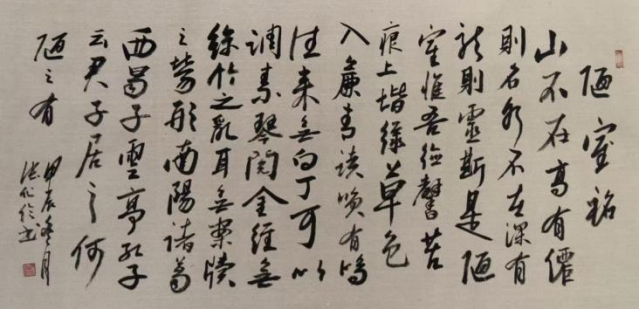 陋室銘
山不在高有僊
則名水不在深有
龍則靈斯是陋
室惟吾德馨苔
痕上堦綠草色
入簾青談笑有鴻
往來無白丁可以
調素琴閱金經無
絲竹之亂耳無案牘
之勞形南陽諸葛
西蜀子雲亭孔子
云君子居之何
陋之有
甲辰冬月
书